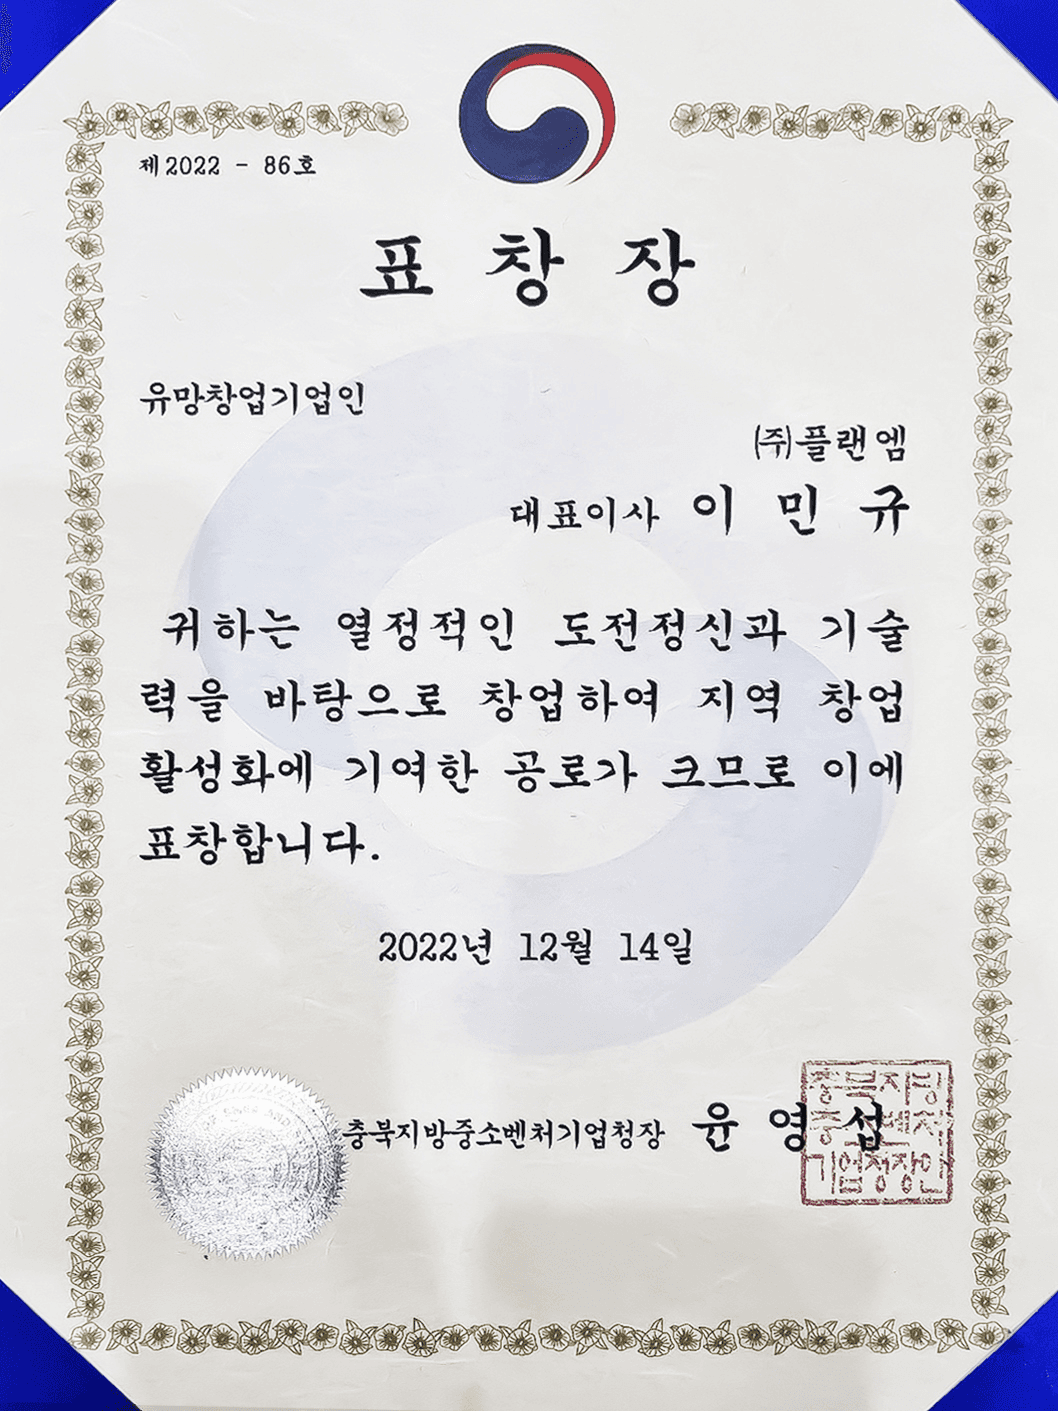 제2022 - 86호
표 창 장
유망창업기업인
㈜플랜엠
대표이사 이 민 규
귀하는 열정적인 도전정신과 기술
력을 바탕으로 창업하여 지역 창업
활성화에 기여한 공로가 크므로 이에
표창합니다.
2022년 12월 14일
충북지방중소벤처기업청장 윤 영 섭
충북지방
중소벤처
기업청장인